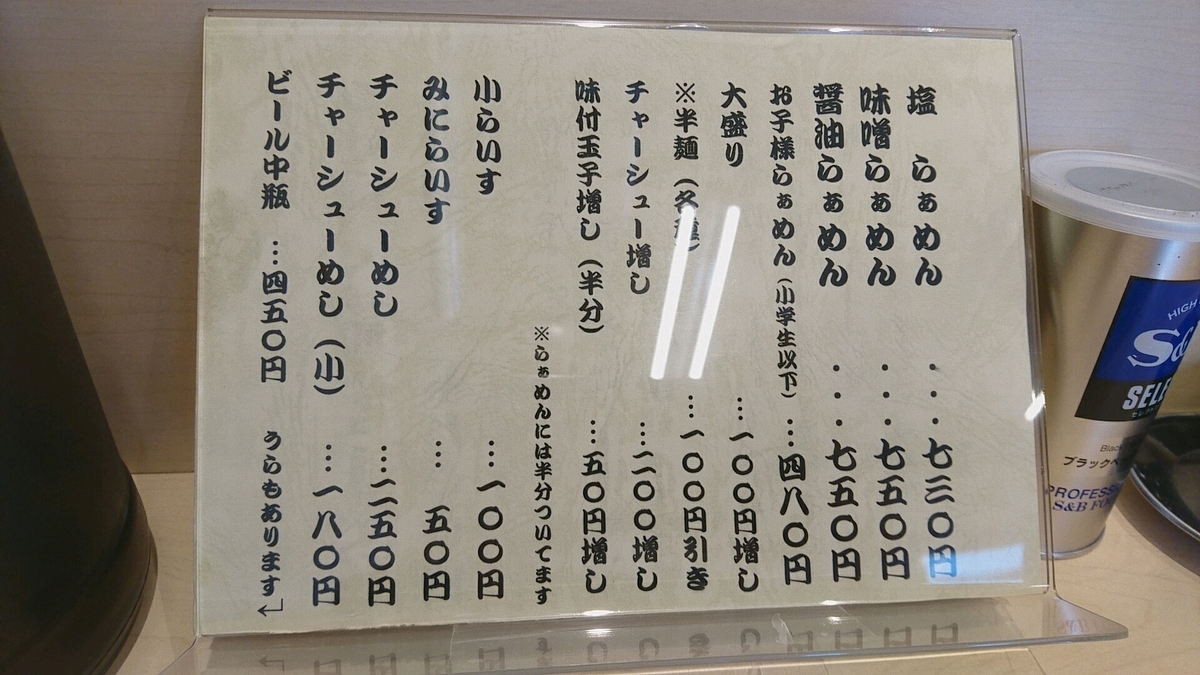 塩 らぁめん ・・・七三〇円
味噌らぁめん ・・・七五〇円
醤油らぁめん ・・・七五〇円
お子様らぁめん(小学生以下)…四八〇円
大盛り …一〇〇円増し
※半麺(各種) …一〇〇円引き
チャーシュー増し …二〇〇増し
味付玉子増し(半分) …五〇円増し
※らぁめんには半分ついてます
小らいす …一〇〇円
みにらいす … 五〇円
チャーシューめし …二五〇円
チャーシューめし(小) …一八〇円
ビール中瓶 …四五〇円 うらもあります←
HIGH
S&
SELE
セレ
Black
ブラックペ
PROFESS
S&B FO